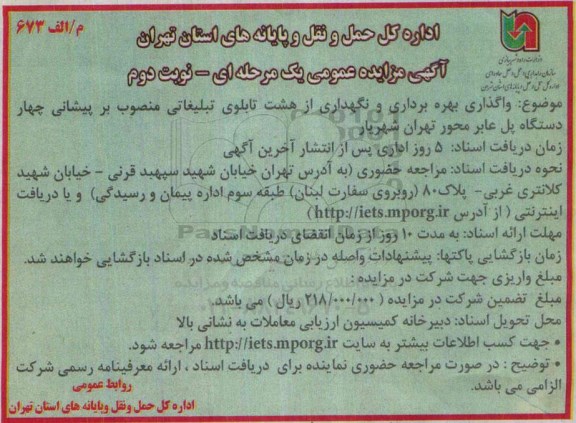 م/الف ۶۷۳
اداره کل حمل و نقل و پایانه های استان تهران
آگهی مزایده عمومی یک مرحله ای - نوبت دوم
موضوع: واگذاری بهره برداری و نگهداری از هشت تابلوی تبلیغاتی منصوب بر پیشانی چهار
دستگاه پل عابر محور تهران شهریار
زمان دریافت اسناد: ۵ روز اداری پس از انتشار آخرین آگهی
نحوه دریافت اسناد: مراجعه حضوری (به آدرس تهران خیابان شهید سپهبد قرنی - خیابان شهید
کلانتری غربی- پلاک۸۰ (روبروی سفارت لبنان) طبقه سوم اداره پیمان و رسیدگی) و یا دریافت
اینترنتی ( از آدرس http://iets.mporg.ir)
مهلت ارائه اسناد: به مدت ۱۰ روز از زمان انقضای دریافت اسناد
زمان بازگشایی پاکتها: پیشنهادات واصله در زمان مشخص شده در اسناد بازگشایی خواهند شد.
مبلغ واریزی جهت شرکت در مزایده :
مبلغ تضمین شرکت در مزایده ( ۲۱۸/۰۰۰/۰۰۰ ریال ) می باشد.
محل تحویل اسناد: دبیرخانه کمیسیون ارزیابی معاملات به نشانی بالا
• جهت کسب اطلاعات بیشتر به سایت http://iets.mporg.ir مراجعه شود.
• توضیح : در صورت مراجعه حضوری نماینده برای دریافت اسناد ، ارائه معرفینامه رسمی شرکت
الزامی می باشد.
روابط عمومی
اداره کل حمل ونقل وپایانه های استان تهران